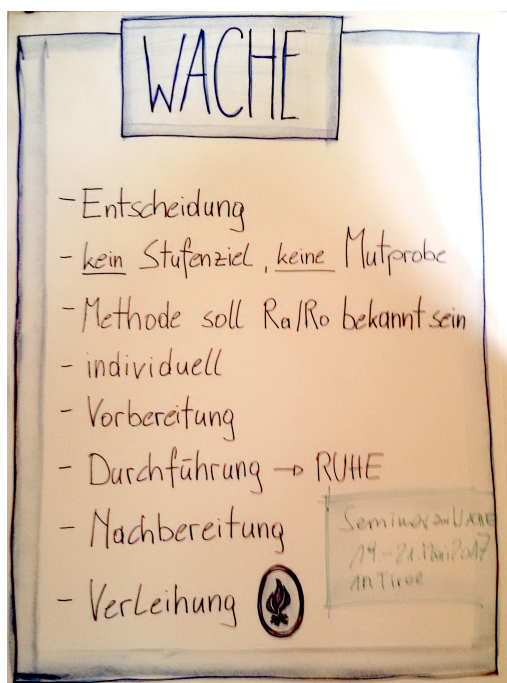 WACHE
- Entscheidung
- kein Stufenziel, keine Mutprobe
- Methode soll Ra/Ro bekannt sein
- individuell
- Vorbereitung
- Durchführung → RUHE
- Nachbereitung
- Verleihung
Seminar
19-21. Mai 2017
in Tirol